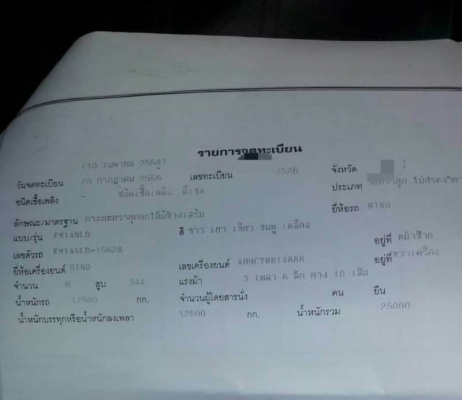 รายการจดทะเบียน
(10 เมษายน 2558)
วันจดทะเบียน 26 กรกฎาคม 2556 เลขทะเบียน 7526 จังหวัด
ชนิดเชื้อเพลิง ดีเซล ประเภท
ลักษณะ/มาตรฐาน กระบะบรรทุกยกได้มีข้างเสริม ยี่ห้อรถ HINO
แบบ/รุ่น FM1ANLD สี ขาว เทา เขียว ชมพู เหลือง
เลขตัวรถ FM1ANLD-15628 อยู่ที่
ยี่ห้อเครื่องยนต์ HINO เลขเครื่องยนต์ อยู่ที่ ขวาเครื่อง
จำนวน 6 สูบ 344 แรงม้า 3 เพลา 6 ล้อ ยาง 10 เส้น
น้ำหนักรถ 12500 กก. จำนวนผู้โดยสารนั่ง คน ยืน
น้ำหนักบรรทุกหรือน้ำหนักลงเพลา 12500 กก. น้ำหนักรวม 25000